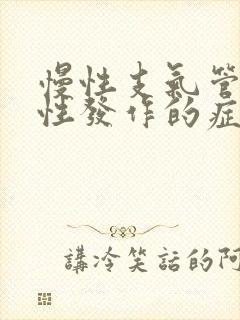 慢性支氣管
性發作的症
講冷笑話的阿